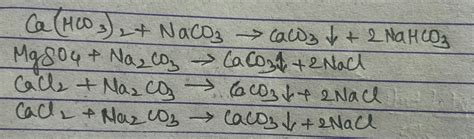 Ca(HCO3)2 + NaCO3 → CaCO3 ↓ + 2NaHCO3
MgSO4 + Na2CO3 → CaCO3↓ + 2NaCl
CaCl2 + Na2CO3 → CaCO3↓ + 2NaCl
CaCl2 + Na2CO3 → CaCO3↓ + 2NaCl